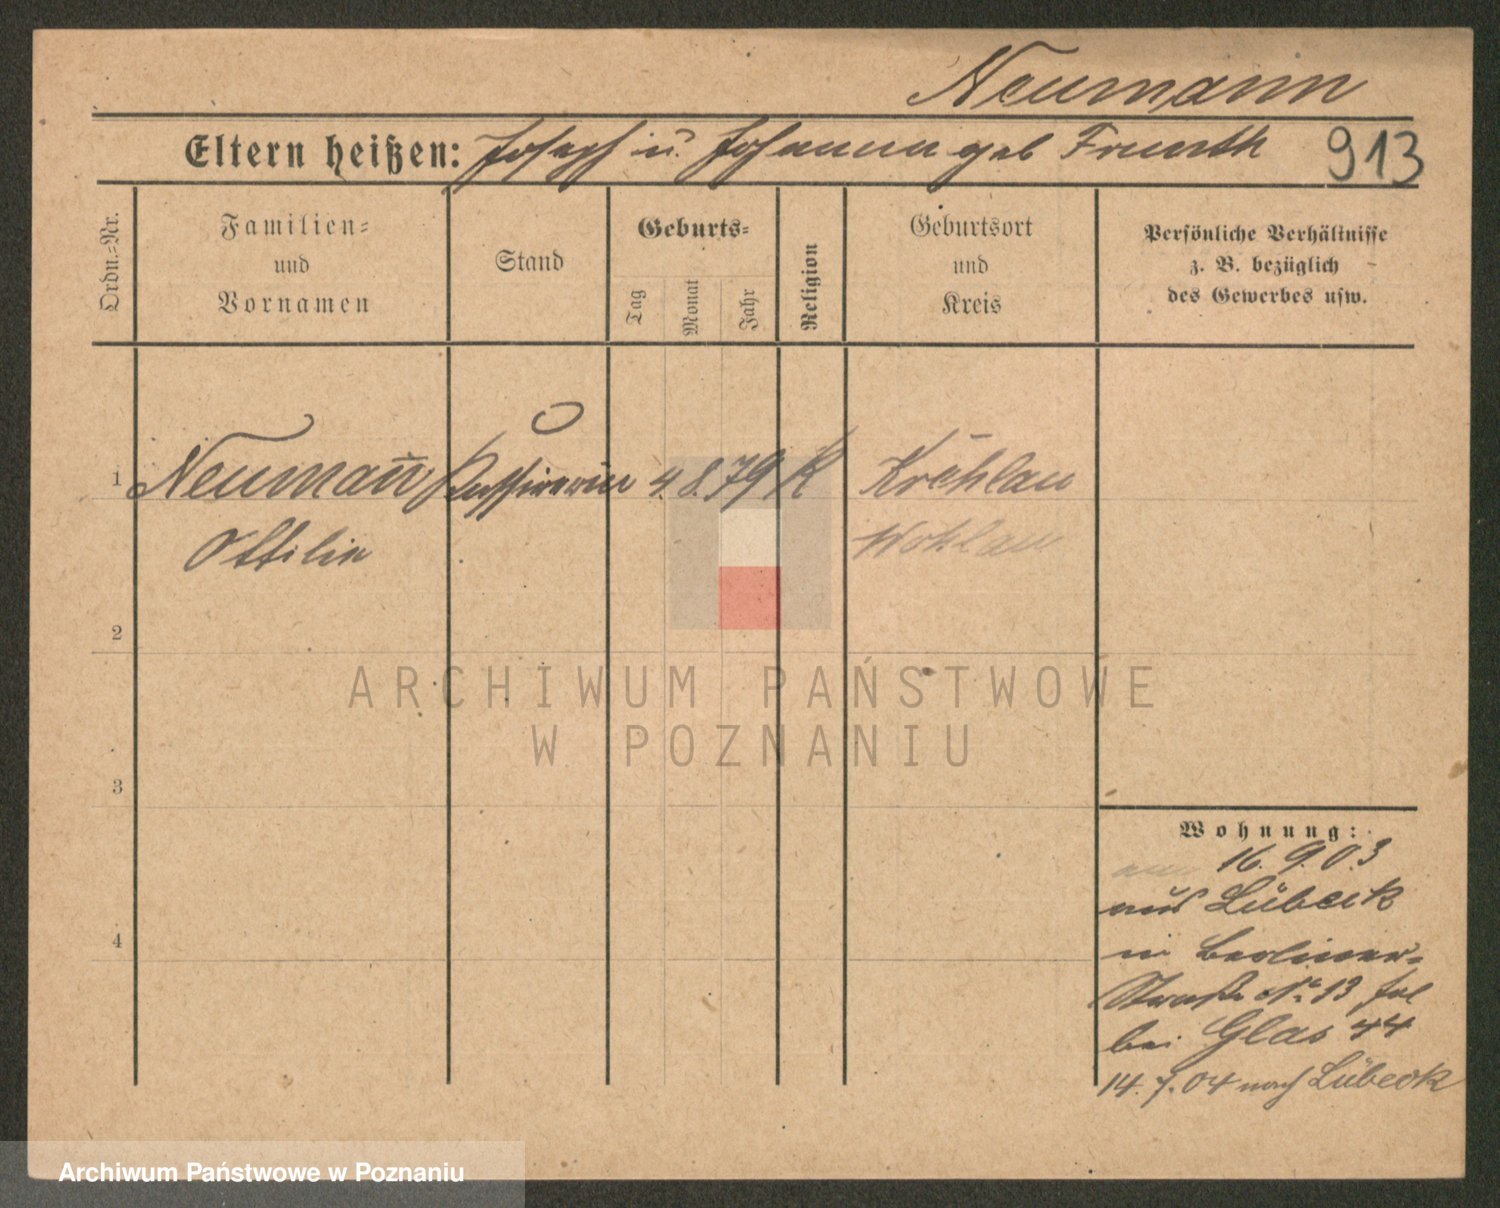 Neumann
Eltern heißen: Joseph u. Johanna geb
913
Ordn.=Nr.
Familien=
und
Vornamen
Stand
Geburts=
Tag
Monat
Jahr
Religion
Geburtsort
und
Kreis
Persönliche Verhältnisse
z. B. bezüglich
des Gewerbes usw.
1
Neumañ Kassirerin 4. 8. 79 K
Ottilie
Wohlau
2
3
4
Wohnung:
am 16. 9. 03
aus Lübeck
in Berliner-
Straße No 13
bei Glas 44
14. 7. 04 nach Lübeck
ARCHIWUM PAŃSTWOWE
W POZNANIU
Archiwum Państwowe w Poznaniu